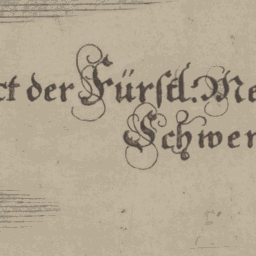 ct der Fürstl. Me
Schwer